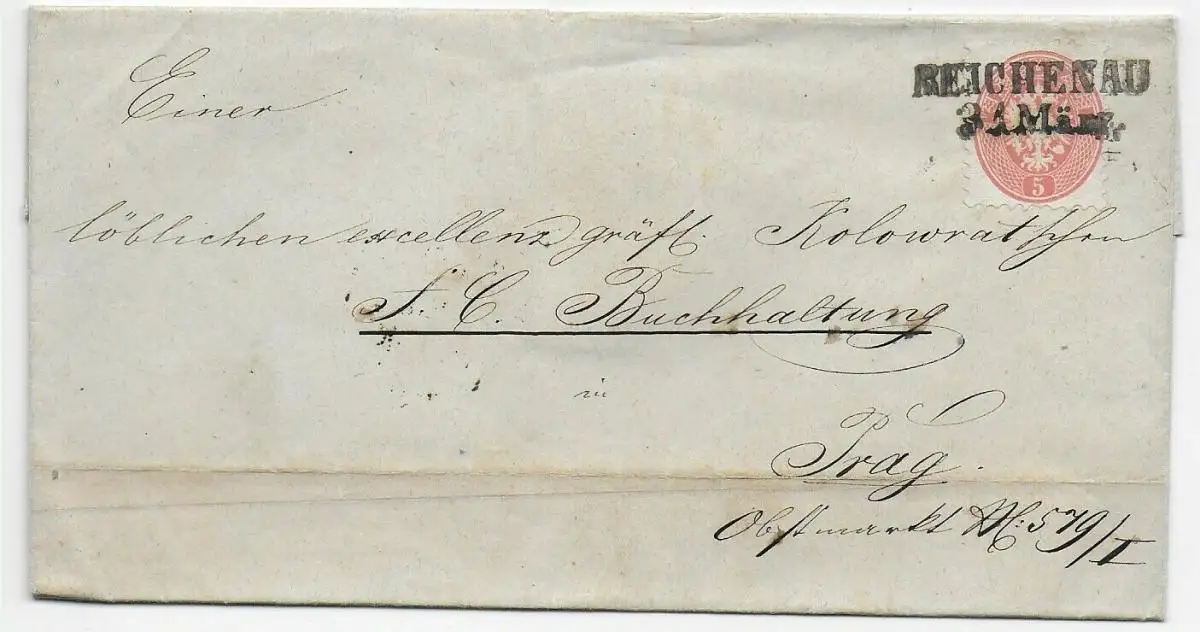 REICHENAU
31 März
5
Einer
löblichen excellenz gräfl. Kolowrat'schen
F. C. Buchhaltung
in
Prag.
Obstmarkt N: 579/I